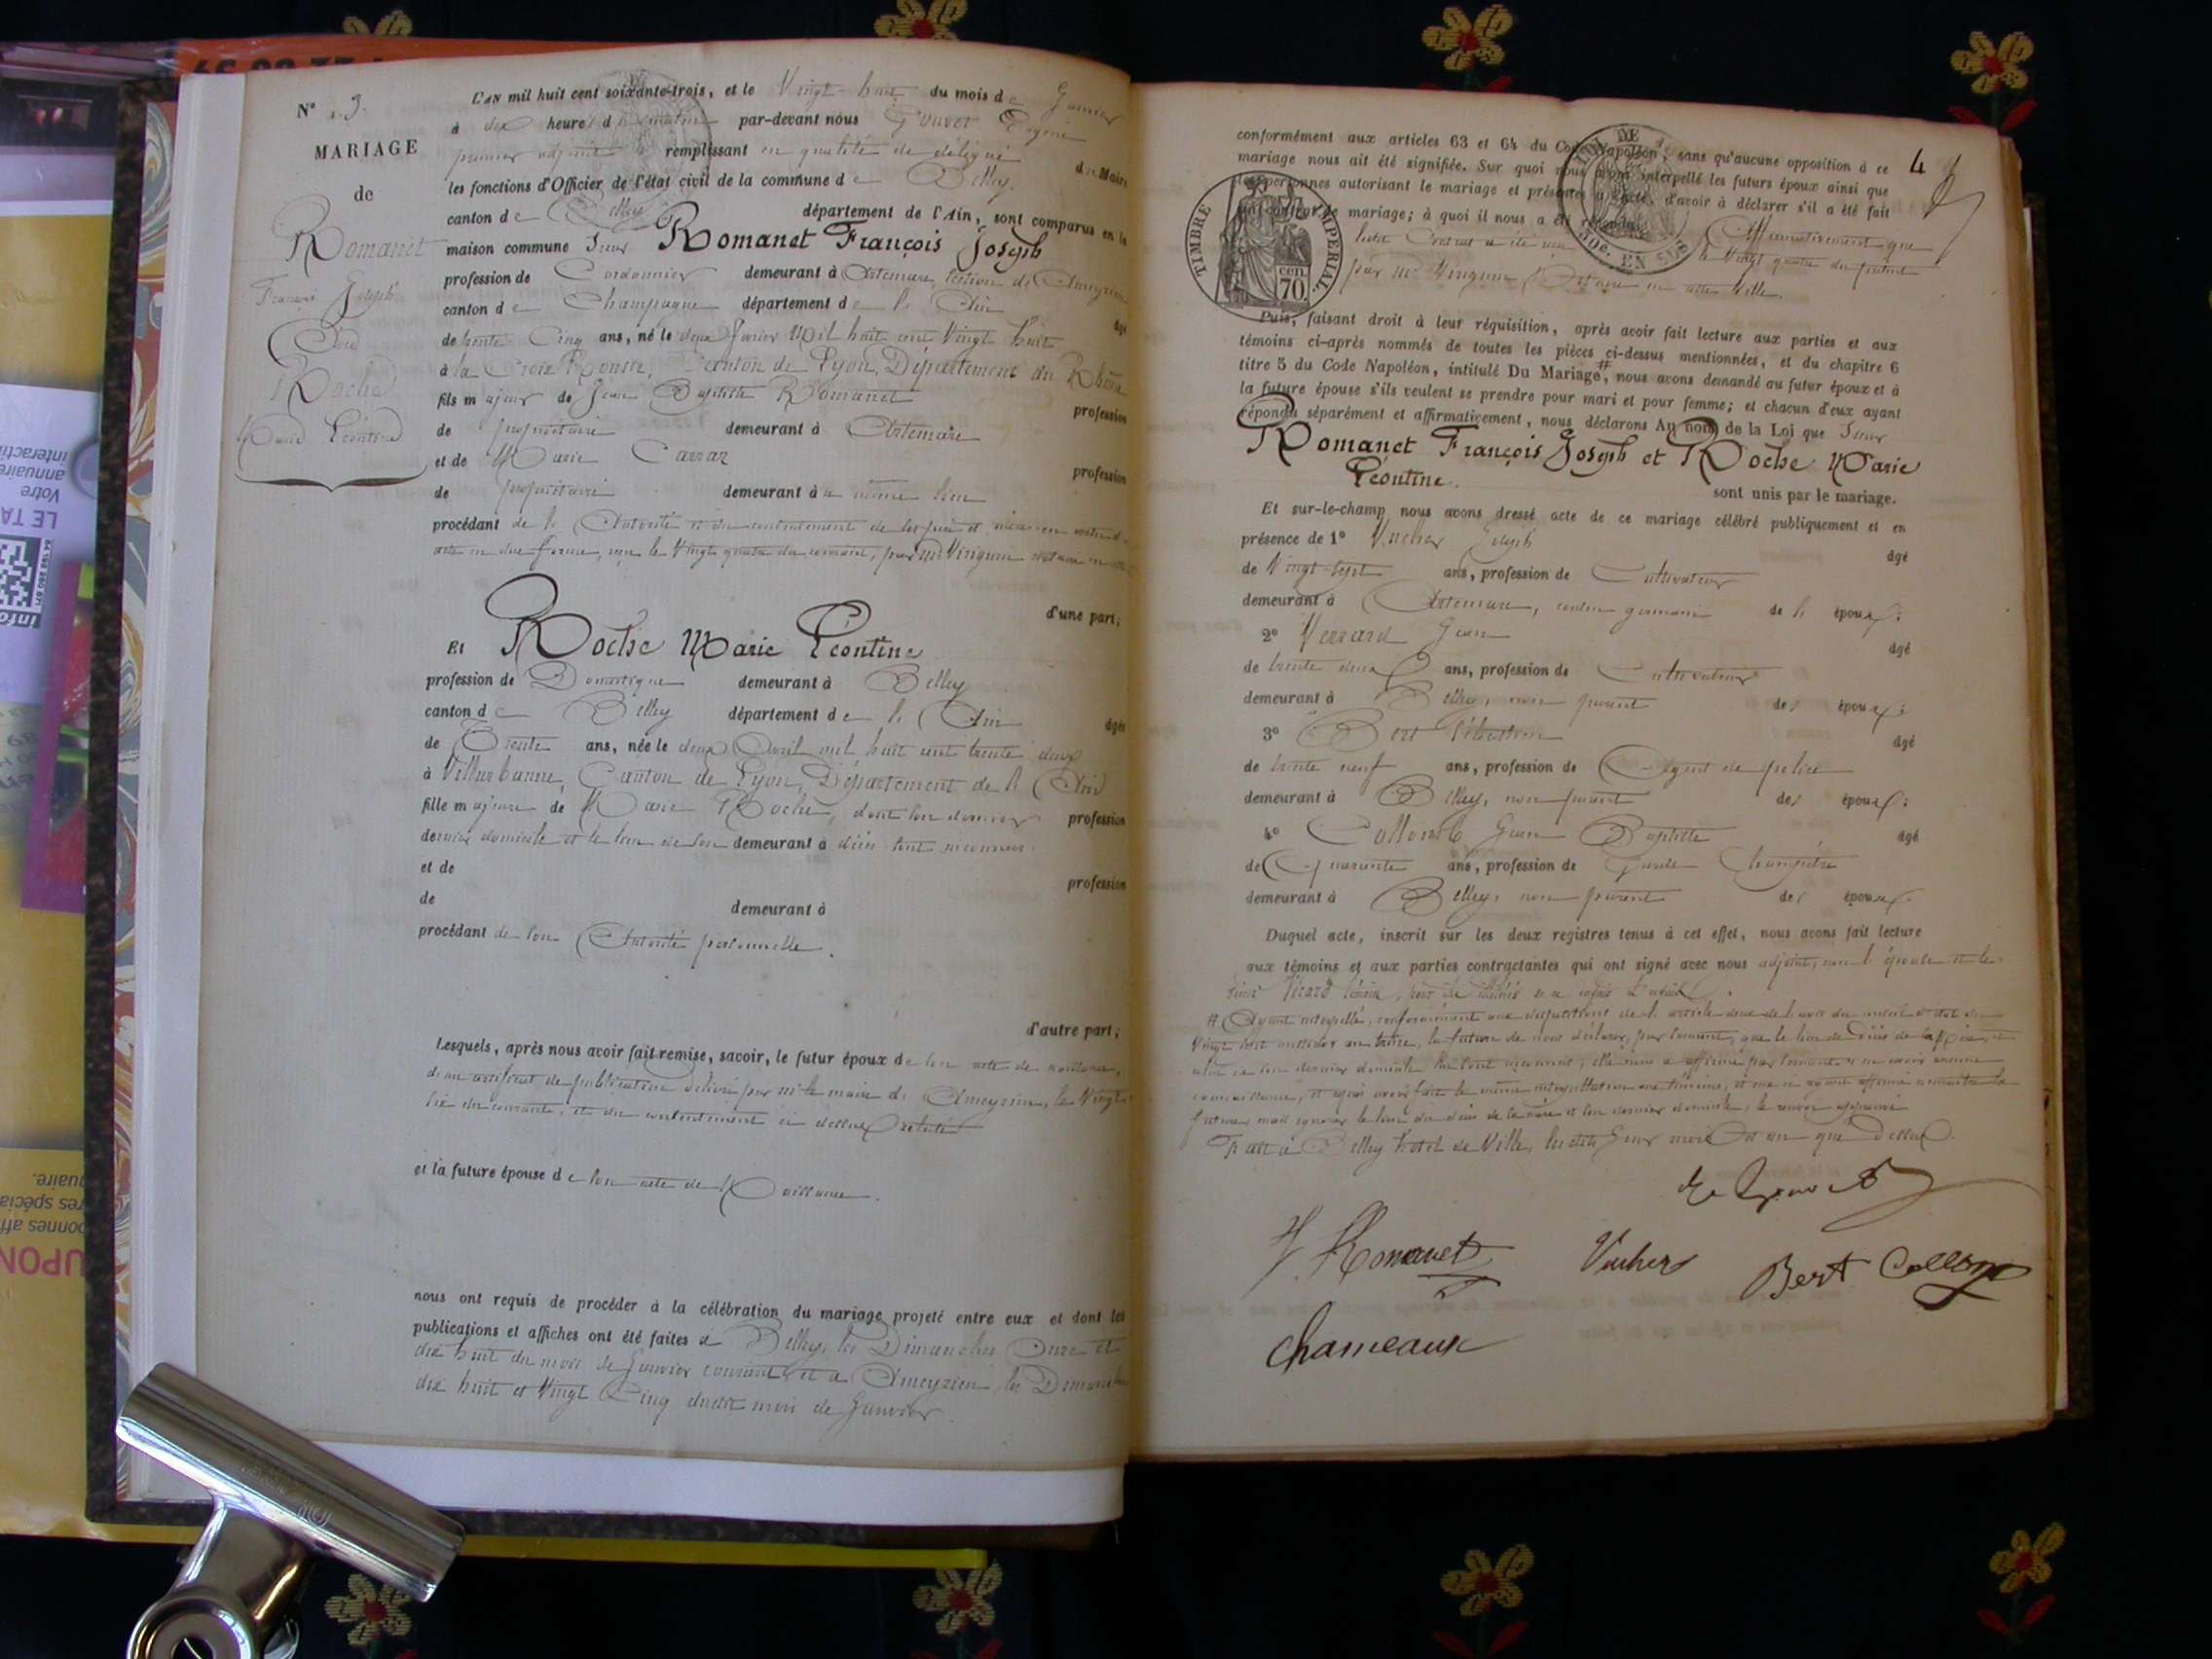 N° 3
MARIAGE
de
Romanet
François Joseph
Roche
Marie Léontine
L'AN mil huit cent soixante-trois, et le Vingt huit du mois de Janvier
à dix heures du matin par-devant nous
premier adjoint remplissant en qualité de délégué du Maire
les fonctions d'Officier de l'état civil de la commune de Belley,
canton de Belley département de l'Ain, sont comparus en la
maison commune Sieur Romanet François Joseph
profession de Cordonnier demeurant à Artemare, section d'Ameyzieu
canton de Champagne département de l'Ain âgé
de trente Cinq ans, né le deux février Mil huit cent Vingt huit
à la Croix Rousse, Canton de Lyon, Département du Rhône
fils majeur de Jean Baptiste Romanet profession
de propriétaire demeurant à Artemare
et de Marie Carraz profession
de propriétaire demeurant à même lieu
procédant de l'Autorité et du consentement de ses père et mère en vertu d'
acte en due forme, reçu le Vingt quatre du courant, par Me notaire en
d'une part;
Et Roche Marie Léontine
profession de Domestique demeurant à Belley
canton de Belley département de l'Ain âgée
de Trente ans, née le deux Avril mil huit cent trente deux
à Villurbanne, Canton de Lyon, Département de l'Ain
fille majeure de Marie Roche, dont son dernier profession
dernier domicile et le lieu de son demeurant à décès sont inconnus
et de profession
de demeurant à
procédant de son Autorité personnelle.
d'autre part;
Lesquels, après nous avoir fait remise, savoir, le futur époux de son acte de naissance,
d'un certificat de publication délivré par Mr le maire d'Ameyzieu, le Vingt
six du courant, et du consentement ci dessus relaté
et la future épouse de son acte de Naissance.
nous ont requis de procéder à la célébration du mariage projeté entre eux et dont les
publications et affiches ont été faites à Belley, les Dimanches Onze et
dix huit du mois de Janvier courant et à Ameyzieu les Dimanches
dix huit et Vingt Cinq dudit mois de Janvier.
4
conformément aux articles 63 et 64 du Code Napoléon, sans qu'aucune opposition à ce
mariage nous ait été signifiée. Sur quoi nous avons interpellé les futurs époux ainsi que
les personnes autorisant le mariage et présentes à l'acte, d'avoir à déclarer s'il a été fait
un contrat de mariage; à quoi il nous a été répondu Affirmativement que
ledit Contrat a été reçu le Vingt quatre du présent
par Me Notaire en cette Ville.
TIMBRE IMPERIAL
70 cen
50c. EN SUS
Puis, faisant droit à leur réquisition, après avoir fait lecture aux parties et aux
témoins ci-après nommés de toutes les pièces ci-dessus mentionnées, et du chapitre 6
titre 5 du Code Napoléon, intitulé Du Mariage #, nous avons demandé au futur époux et à
la future épouse s'ils veulent se prendre pour mari et pour femme; et chacun d'eux ayant
répondu séparément et affirmativement, nous déclarons Au nom de la Loi que Sieur
Romanet François Joseph et Roche Marie
Léontine.
sont unis par le mariage.
Et sur-le-champ nous avons dressé acte de ce mariage célébré publiquement et en
présence de 1° Vucher Joseph âgé
de Vingt-sept ans, profession de Cultivateur
demeurant à Artemare, cousin germain de l'époux;
2° Verrard Jean âgé
de trente deux ans, profession de Cultivateur
demeurant à Belley, non parent des époux;
3° Bert Sébastien âgé
de trente neuf ans, profession de Agent de police
demeurant à Belley, non parent des époux;
4° Collomb Jean Baptiste âgé
de Quarante ans, profession de Garde Champêtre
demeurant à Belley, non parent des époux.
Duquel acte, inscrit sur les deux registres tenus à cet effet, nous avons fait lecture
aux témoins et aux parties contractantes qui ont signé avec nous adjoint, non l'épouse et le
sieur témoin, pour
# Ayant interpellé, conformément aux dispositions de l'article deux de l'avis du conseil d'état du
la future de nous déclarer, par serment, que le lieu du décès de sa mère, et
celui de son dernier domicile lui sont inconnus, elle nous a affirmé par serment n'en avoir aucune
connaissance, et après avoir fait la même interpellation aux témoins, et ceux-ci ayant affirmé connaître la
future, mais ignorer le lieu du décès de sa mère et son dernier domicile, le renvoi approuvé
Fait à Belley hotel de Ville, les dits Jour mois et an que dessus.
Romanet
Vucher
Bert Collomb
Chameaux